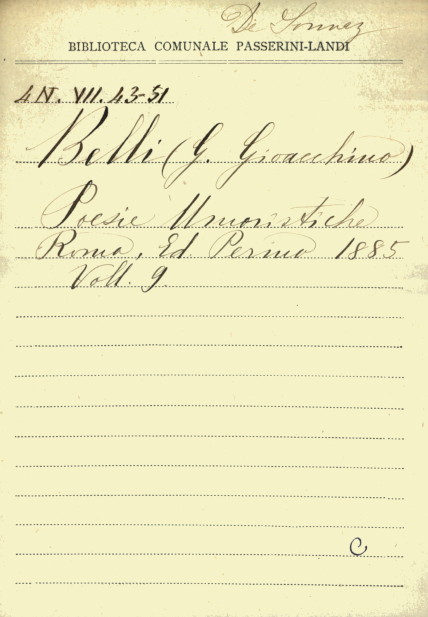 De
BIBLIOTECA COMUNALE PASSERINI-LANDI
4 N. VII. 43-51
Belli (G. Gioacchino)
Poesie Umoristiche
Roma, Ed. Perino 1885
Voll. 9
C